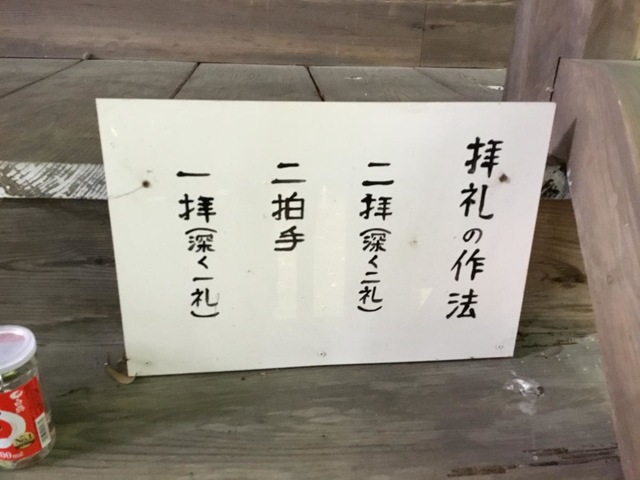 拝礼の作法
二拝(深く二礼)
二拍手
一拝(深く一礼)